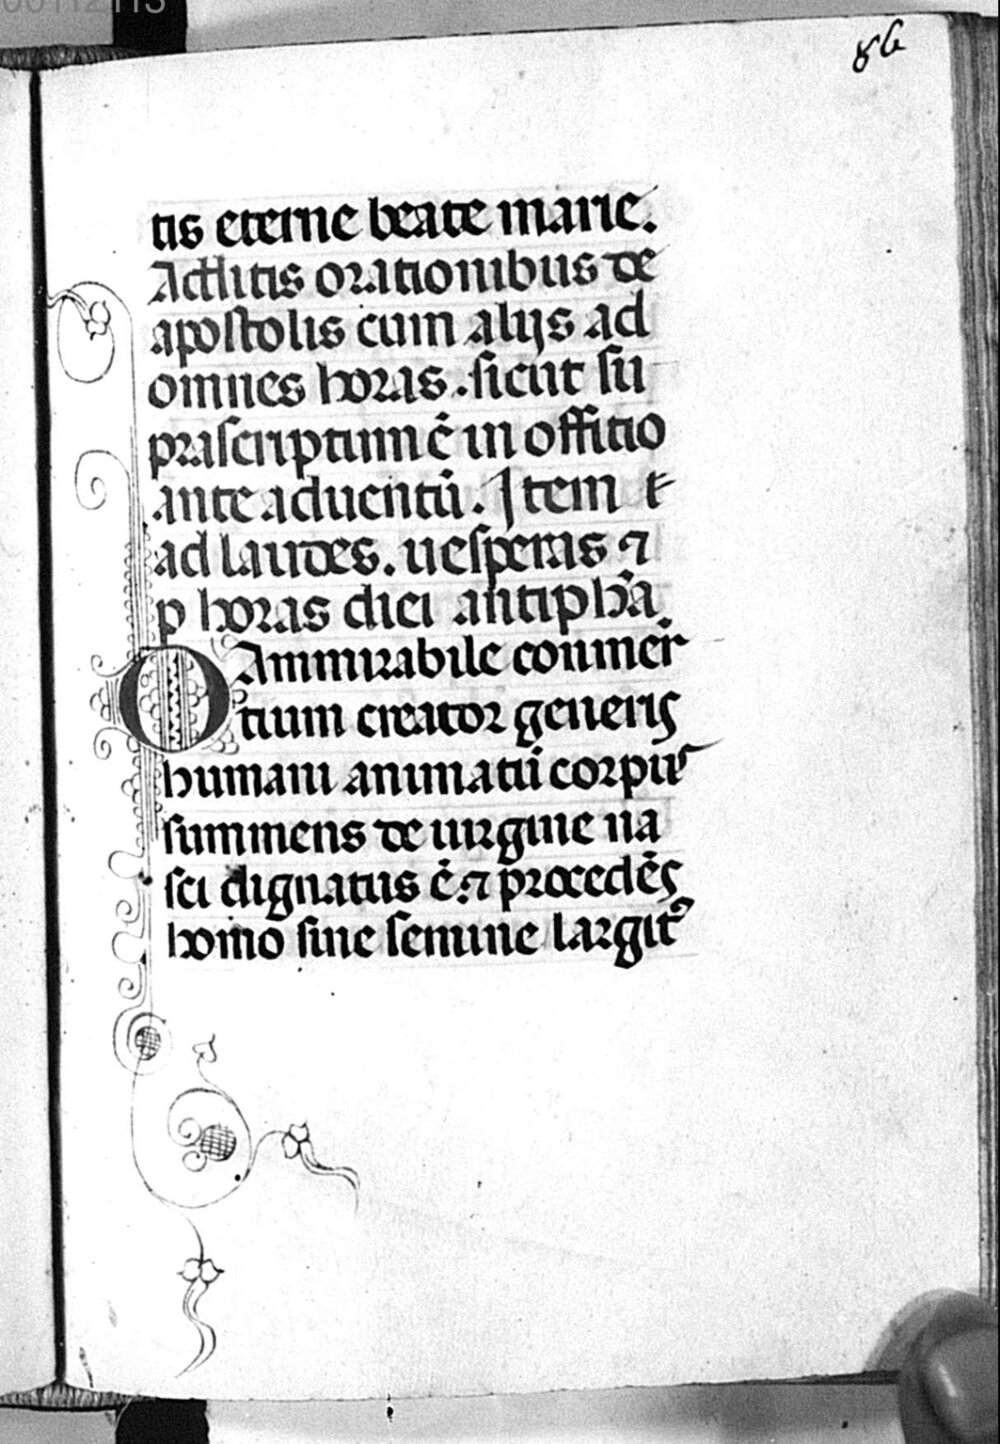 00112113
86
tis eterne beate marie.
Additis orationibus de
apostolis cum alijs ad
omnes horas. sicut su
prascriptum ē in offitio
ante aduentū. Item et
ad laudes. uesperas ⁊
p horas diei antiphā.
O Ammirabile conmer
tium creator generis
humani animatū corpus
summens de uirgine na
sci dignatus ē. ⁊ procedēs
homo sine semine largit᷒